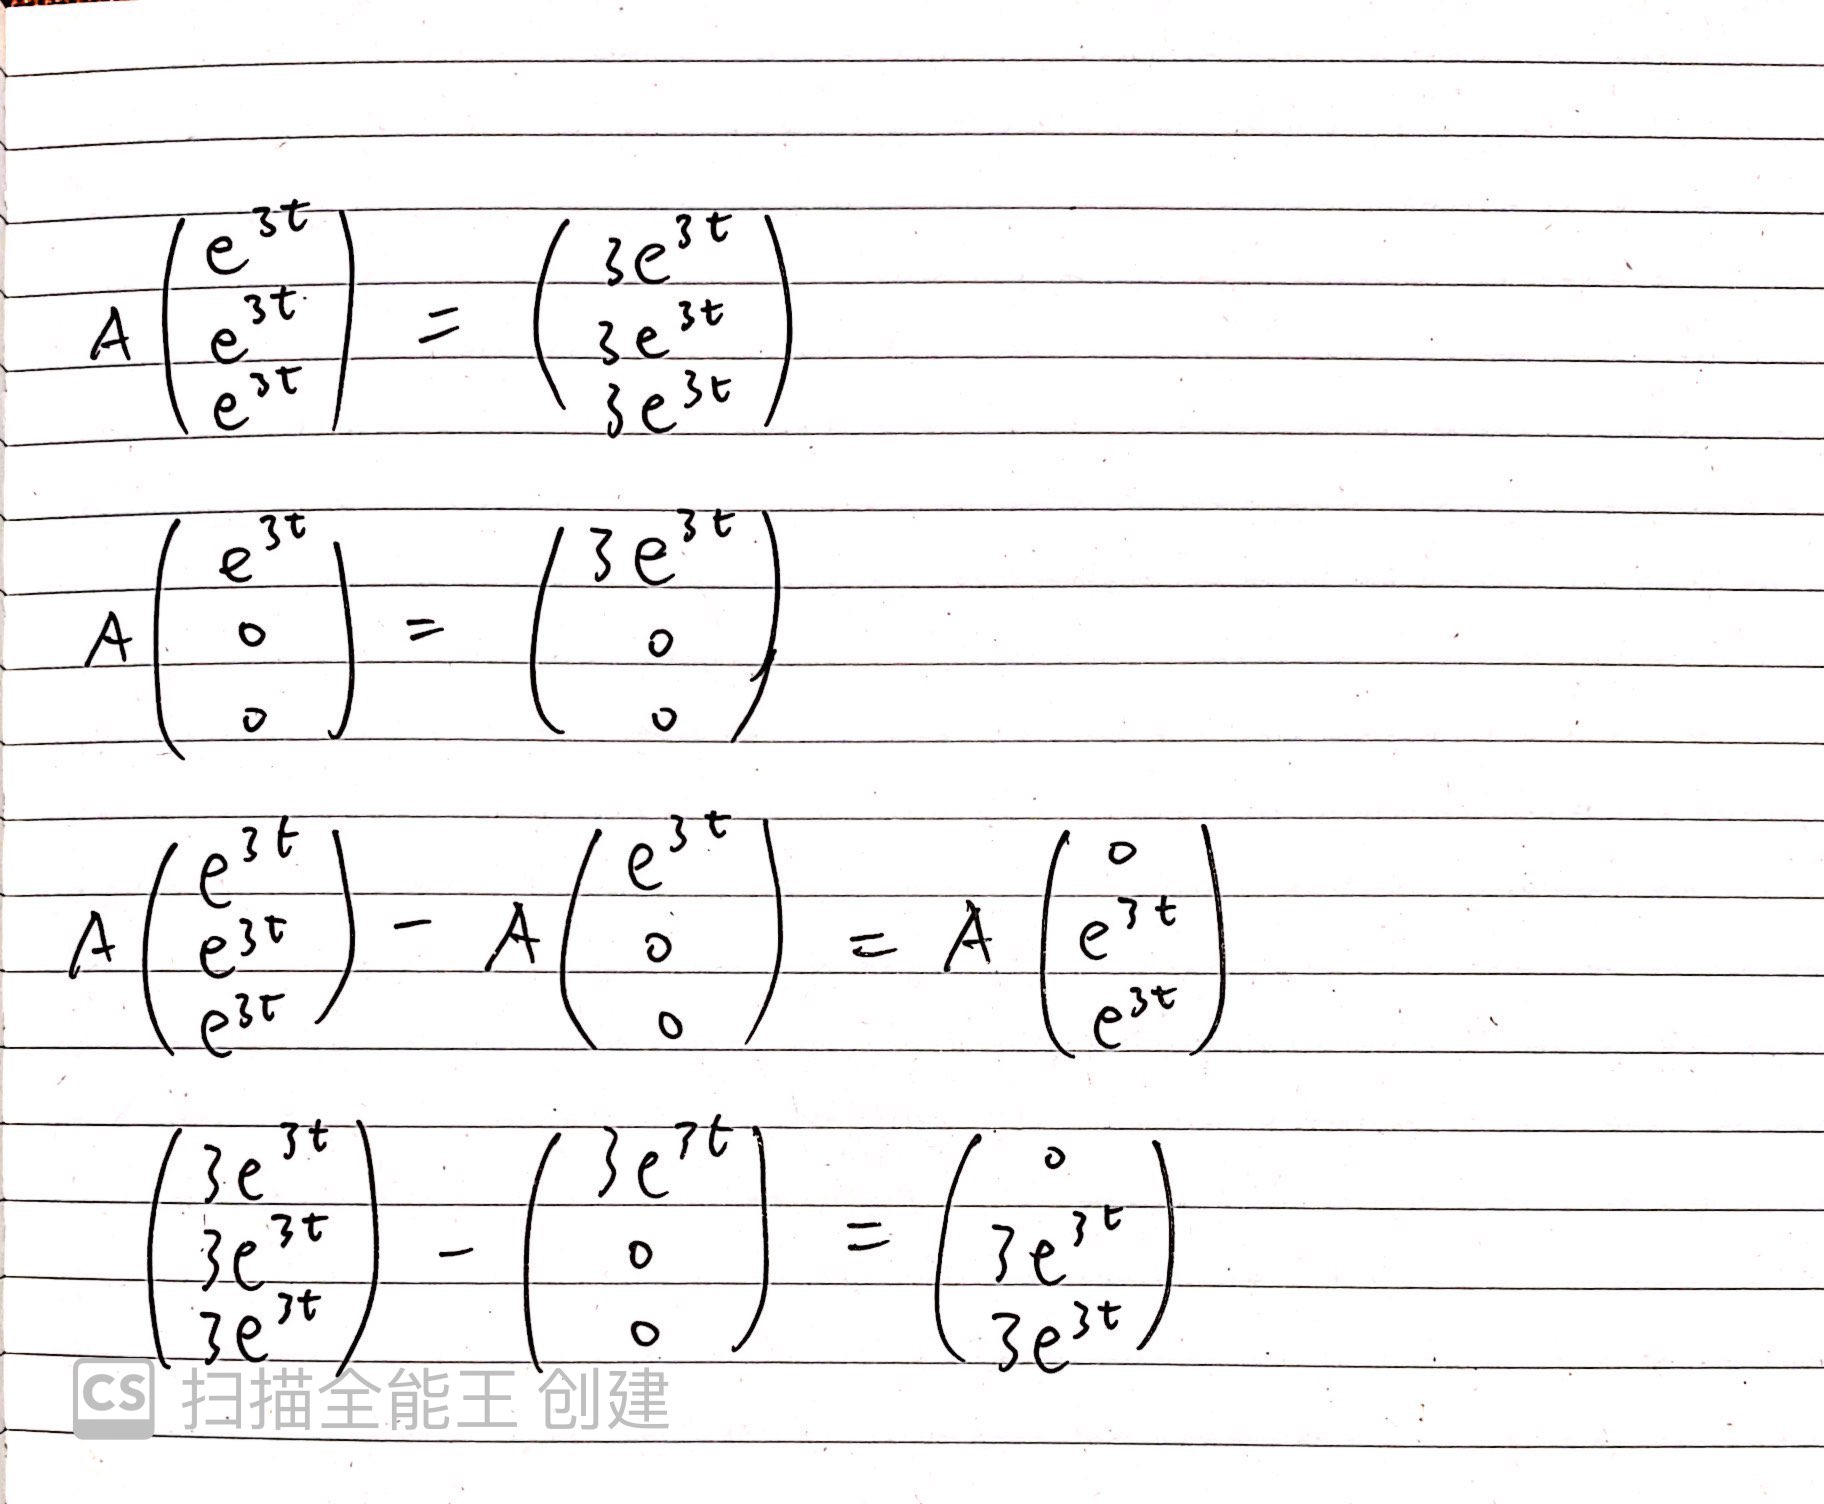 A \begin{pmatrix} e^{3t} \\ e^{3t} \\ e^{3t} \end{pmatrix} = \begin{pmatrix} 3e^{3t} \\ 3e^{3t} \\ 3e^{3t} \end{pmatrix}
A \begin{pmatrix} e^{3t} \\ 0 \\ 0 \end{pmatrix} = \begin{pmatrix} 3e^{3t} \\ 0 \\ 0 \end{pmatrix}
A \begin{pmatrix} e^{3t} \\ e^{3t} \\ e^{3t} \end{pmatrix} - A \begin{pmatrix} e^{3t} \\ 0 \\ 0 \end{pmatrix} = A \begin{pmatrix} 0 \\ e^{3t} \\ e^{3t} \end{pmatrix}
\begin{pmatrix} 3e^{3t} \\ 3e^{3t} \\ 3e^{3t} \end{pmatrix} - \begin{pmatrix} 3e^{3t} \\ 0 \\ 0 \end{pmatrix} = \begin{pmatrix} 0 \\ 3e^{3t} \\ 3e^{3t} \end{pmatrix}
CS 扫描全能王 创建